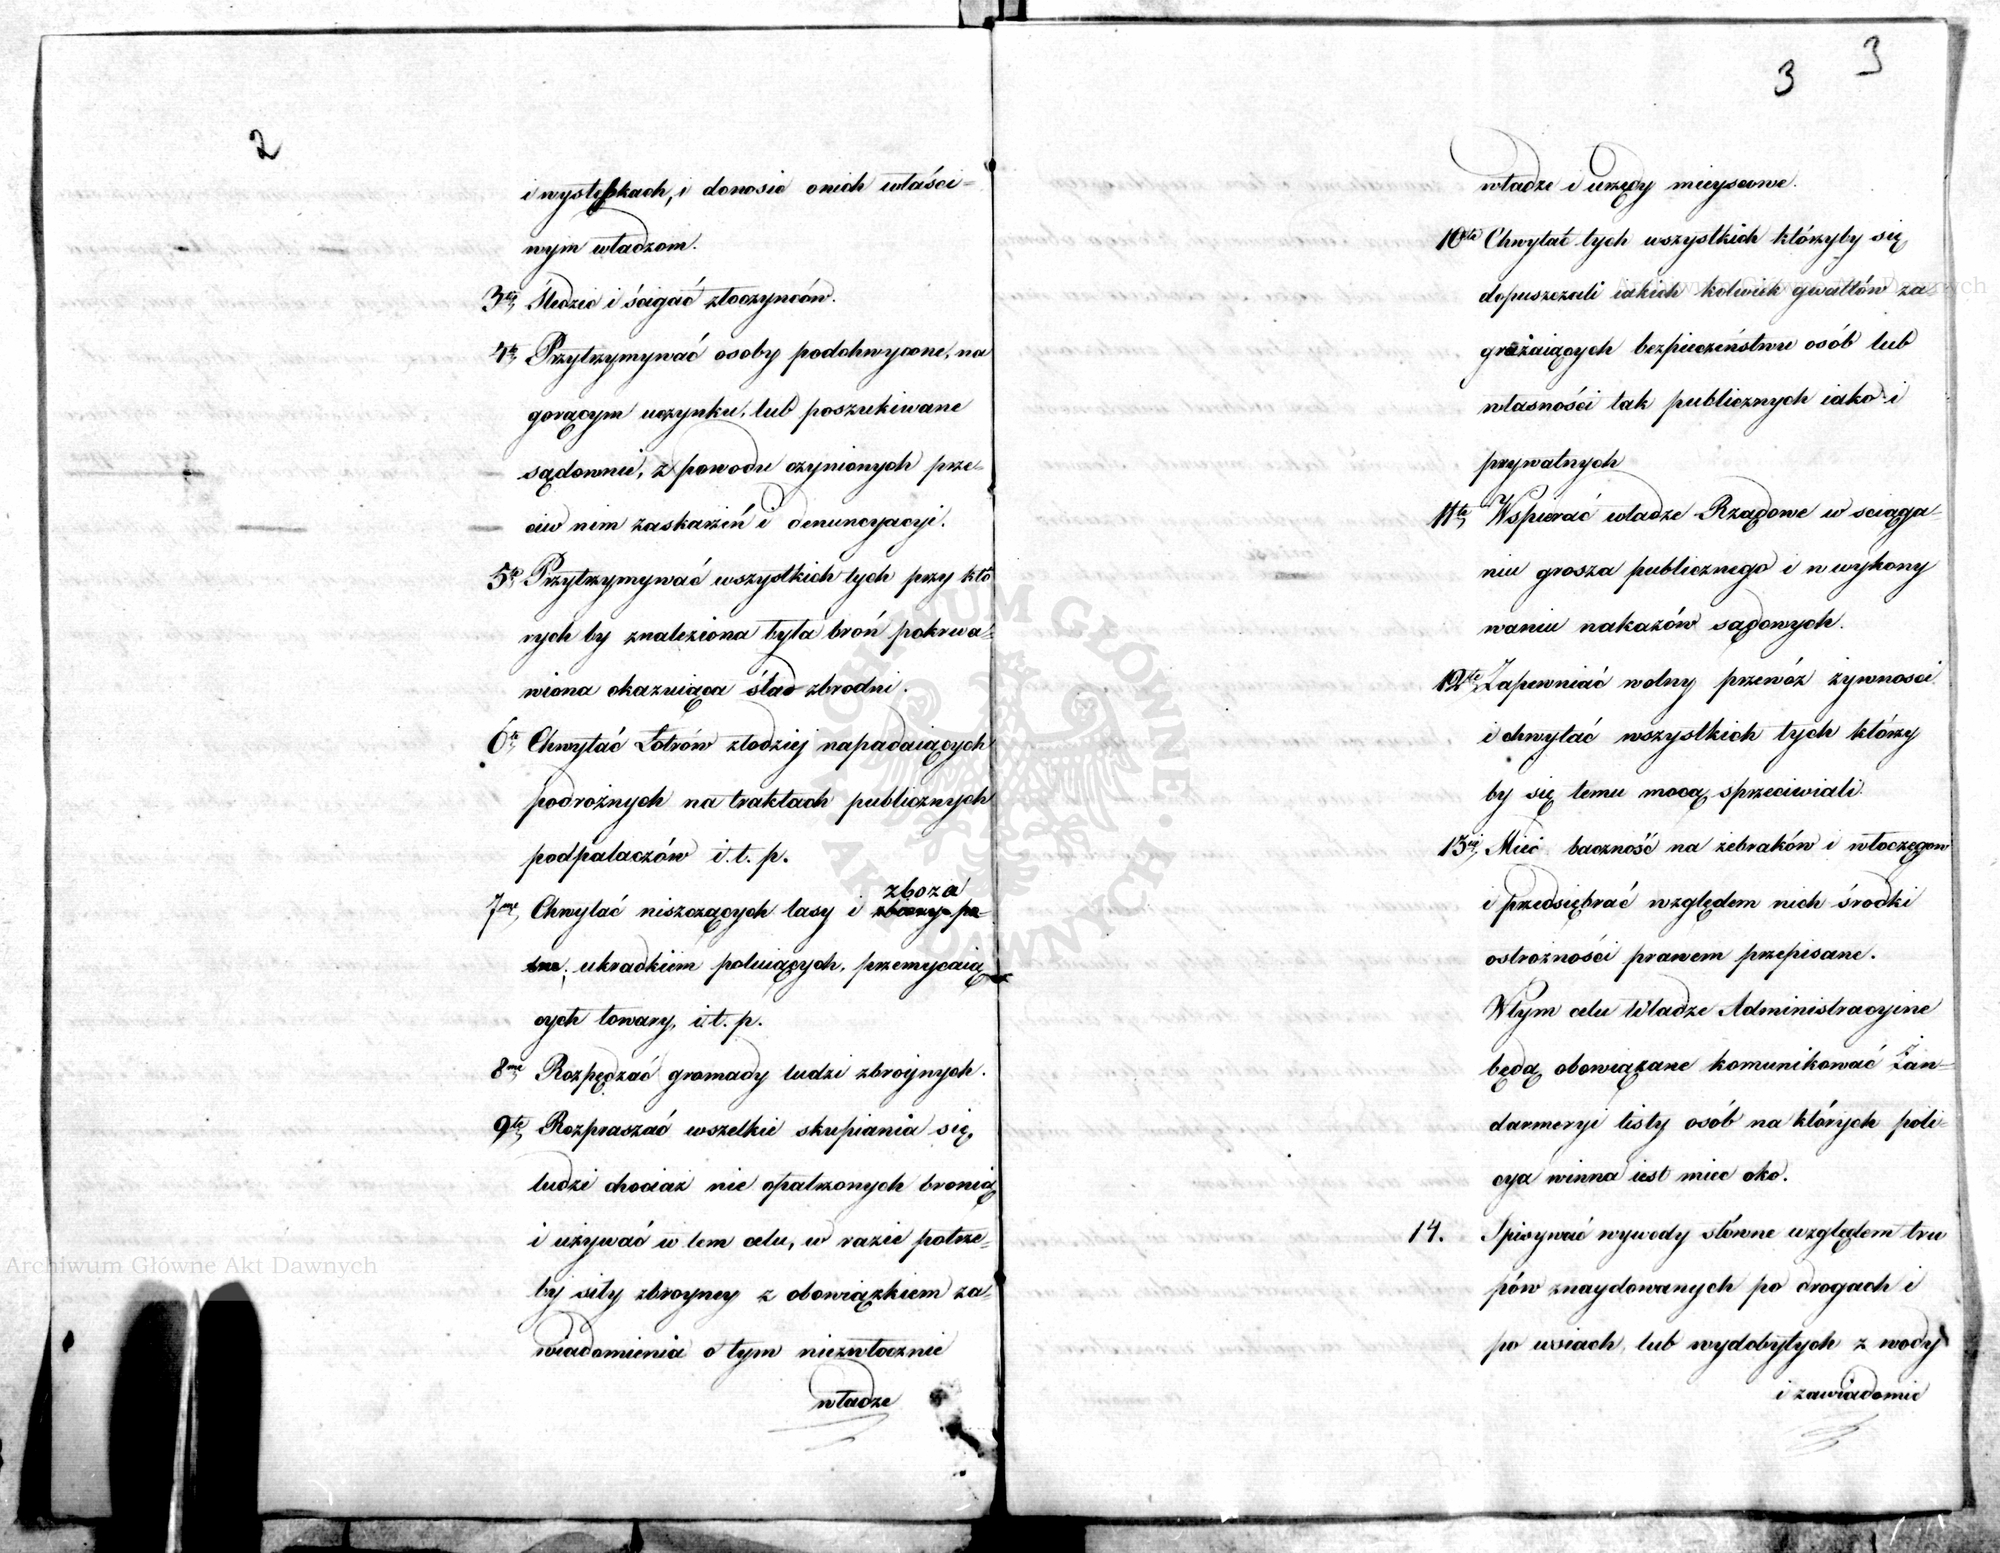 2
i występkach, i donosić onich właści-
wym władzom.
3cie Śledzić i ścigać złoczyńców.
4te Przytrzymywać osoby podchwycone, na
gorącym uczynku, lub poszukiwane
sądownie, z powodu czynionych prze-
ciw nim zaskarżeń i denuncyacyi.
5te Przytrzymywać wszystkich tych przy któ
rych by znaleziona była broń pokrwa-
wiona okazuiąca ślad zbrodni.
6te Chwytać Łotrów złodziej napadaiących
podrożnych na traktach publicznych
podpalaczów i. t. p.
zboża
7me Chwytać niszczących lasy i
ukradkiem poluiących, przemycaią
cych towary, i t. p.
8me Rozpędzać gromady ludzi zbroynych.
9te Rozpraszać wszelkie skupiania się,
ludzi chociaż nie opatrzonych bronią
i używać w tem celu, w razie potrze-
by siły zbroyney z obowiązkiem za-
wiadomienia o tym niezwłocznie
władze
3 3
władze i urzędy mieyscowe.
10te Chwytać tych wszystkich którzyby się
dopuszczali iakich kolwiek gwałtów za-
grażaiących bezpieczeństwu osób lub
własności tak publicznych iako i
prywatnych
11te Wspierać władze Rządowe w sciąga-
niu grosza publicznego i w wykony
waniu nakazów sądowych.
12te Zapewniać wolny przewóz żywnosci
i chwytać wszystkich tych którzy
by się temu mocą sprzeciwiali.
13cie Mieć baczność na żebraków i włoczęgow
i przedsiębrać względem nich środki
ostrożności prawem przepisane.
Wtym celu Władze Administracyine
będą obowiązane komunikować Żan-
darmeryi listy osób na których poli-
cya winna iest mieć oko.
14. Spisywać wywody słówne względem tru
pów znaydowanych po drogach i
po wsiach, lub wydobytych z wody
i zawiadomić
Archiwum Główne Akt Dawnych
Archiwum Główne Akt Dawnych
ARCHIWUM GŁÓWNE · AKT DAWNYCH ·